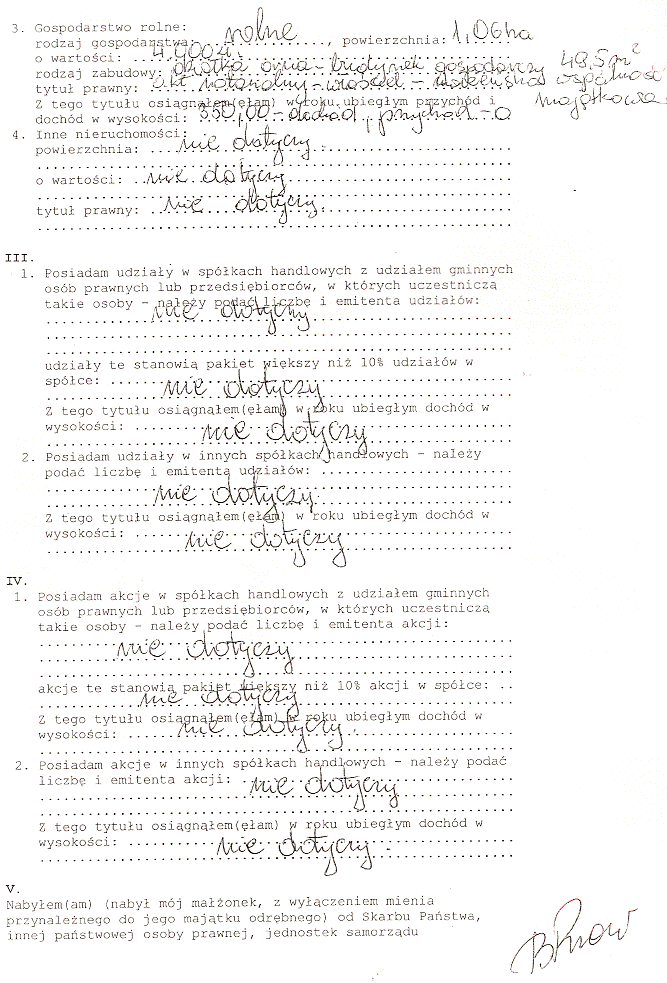 3. Gospodarstwo rolne:
rodzaj gospodarstwa: rolne, powierzchnia: 1,06ha
o wartości: 4.900zł.
rodzaj zabudowy: działka orna - budynek gospodarczy 49,5m²
tytuł prawny: akt notarialny - własność - małżeńska wspólność majątkowa
Z tego tytułu osiągnąłem(ęłam) w roku ubiegłym przychód i
dochód w wysokości: 350,00 - dochód, przychód - 0
4. Inne nieruchomości:
powierzchnia: nie dotyczy.
o wartości: nie dotyczy
tytuł prawny: nie dotyczy.
III.
1. Posiadam udziały w spółkach handlowych z udziałem gminnych
osób prawnych lub przedsiębiorców, w których uczestniczą
takie osoby - należy podać liczbę i emitenta udziałów:
nie dotyczy
udziały te stanowią pakiet większy niż 10% udziałów w
spółce: nie dotyczy
Z tego tytułu osiągnąłem(ęłam) w roku ubiegłym dochód w
wysokości: nie dotyczy
2. Posiadam udziały w innych spółkach handlowych - należy
podać liczbę i emitenta udziałów:
nie dotyczy
Z tego tytułu osiągnąłem(ęłam) w roku ubiegłym dochód w
wysokości: nie dotyczy
IV.
1. Posiadam akcje w spółkach handlowych z udziałem gminnych
osób prawnych lub przedsiębiorców, w których uczestniczą
takie osoby - należy podać liczbę i emitenta akcji:
nie dotyczy
akcje te stanowią pakiet większy niż 10% akcji w spółce:
nie dotyczy
Z tego tytułu osiągnąłem(ęłam) w roku ubiegłym dochód w
wysokości: nie dotyczy.
2. Posiadam akcje w innych spółkach handlowych - należy podać
liczbę i emitenta akcji: nie dotyczy
Z tego tytułu osiągnąłem(ęłam) w roku ubiegłym dochód w
wysokości: nie dotyczy.
V.
Nabyłem(am) (nabył mój małżonek, z wyłączeniem mienia
przynależnego do jego majątku odrębnego) od Skarbu Państwa,
innej państwowej osoby prawnej, jednostek samorządu